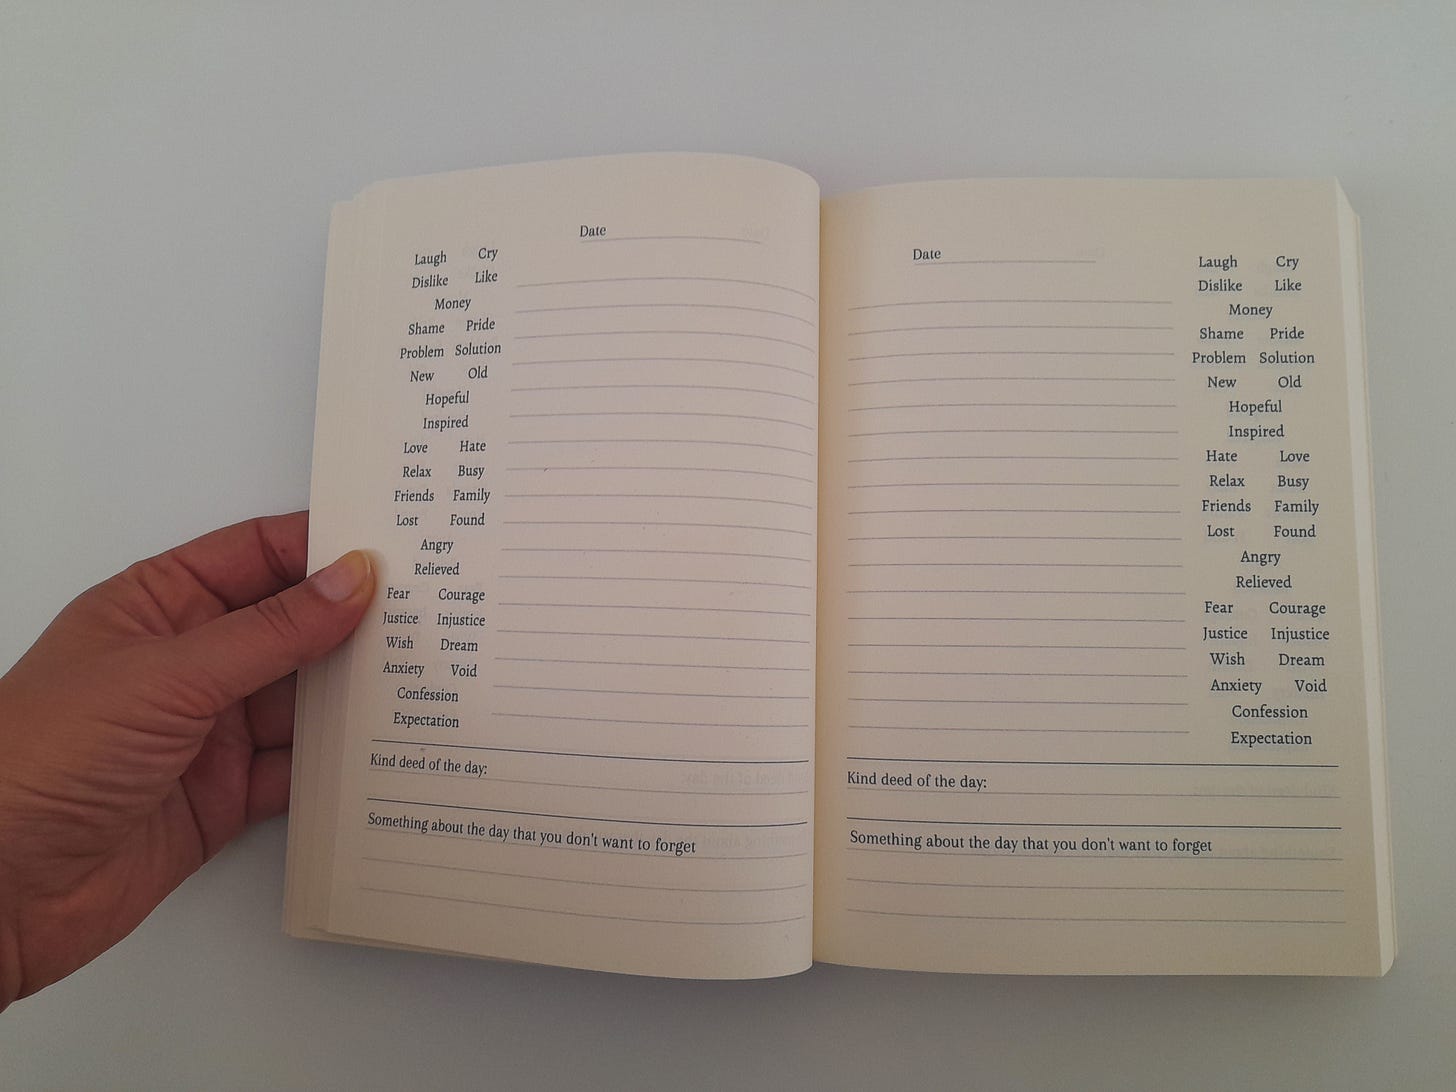 Date
Laugh Cry
Dislike Like
Money
Shame Pride
Problem Solution
New Old
Hopeful
Inspired
Love Hate
Relax Busy
Friends Family
Lost Found
Angry
Relieved
Fear Courage
Justice Injustice
Wish Dream
Anxiety Void
Confession
Expectation
Kind deed of the day:
Something about the day that you don't want to forget
Date
Laugh Cry
Dislike Like
Money
Shame Pride
Problem Solution
New Old
Hopeful
Inspired
Hate Love
Relax Busy
Friends Family
Lost Found
Angry
Relieved
Fear Courage
Justice Injustice
Wish Dream
Anxiety Void
Confession
Expectation
Kind deed of the day:
Something about the day that you don't want to forget